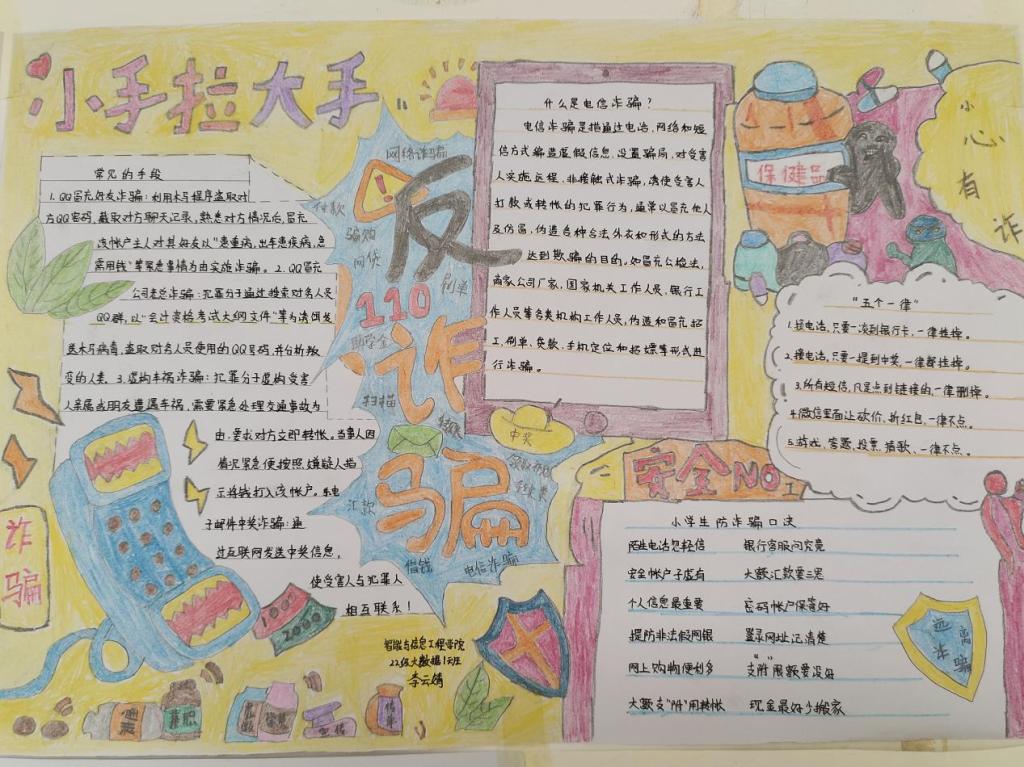 小手拉大手
常见的手段
1.QQ冒充好友诈骗：利用木马程序盗取对
方QQ密码，截取对方聊天记录，熟悉对方情况后，冒充
该帐户主人对其好友以“患重病，出车患疾病，急
需用钱”等紧急事情为由实施诈骗。2.QQ冒充
公司老总诈骗：犯罪分子通过搜索财务人员
QQ群，以“会计资格考试大纲文件”等为诱饵发
送木马病毒，盗取财务人员使用的QQ号码，并分析
人亲属或朋友遭遇车祸，需要紧急处理交通事故为
由，要求对方立即转帐。当事人因
情况紧急便按照嫌疑人指
示将钱打入该帐户。4.电
子邮件中奖诈骗：通
过互联网发送中奖信息，
使受害人与犯罪人
相互联系！
网络诈骗
付款
骗购
网贷
刷单
助学金
扫描
汇款
借钱
电信诈骗
中奖
反
110
诈
骗
什么是电信诈骗？
电信诈骗是指通过电话，网络和短
信方式编造虚假信息，设置骗局，对受害
人实施远程，非接触式诈骗，诱使受害人
打款或转帐的犯罪行为，通常以冒充他人
及仿冒，伪造各种合法外衣和形式的方法
达到欺骗的目的，如冒充公检法，
商家公司厂家，国家机关工作人员，银行工
作人员等各类机构工作人员，伪造和冒充招
工，刷单，贷款，手机定位和招嫖等形式进
行诈骗。
保健品
小
心
有
诈
“五个一律”
1.接电话，只要一谈到银行卡，一律挂掉。
2.接电话，只要一提到中奖，一律都挂掉。
3.所有短信，凡是点到链接的，一律删掉。
4.微信里面让砍价，拆红包，一律不点。
5.游戏，答题，投票，猜歌，一律不点。
安全NO.1
小学生防诈骗口诀
陌生电话勿轻信 银行客服问究竟
安全帐户子虚有 大额汇款要三思
个人信息最重要 密码帐户保管好
提防非法假网银 登录网址记清楚
网上购物便利多 支“附”限额要设好
大额支“附”用转帐 现金最好少搬家
诈
骗
100
2000
智能与信息工程学院
22级大数据1班
李云婧
远
离
诈
骗